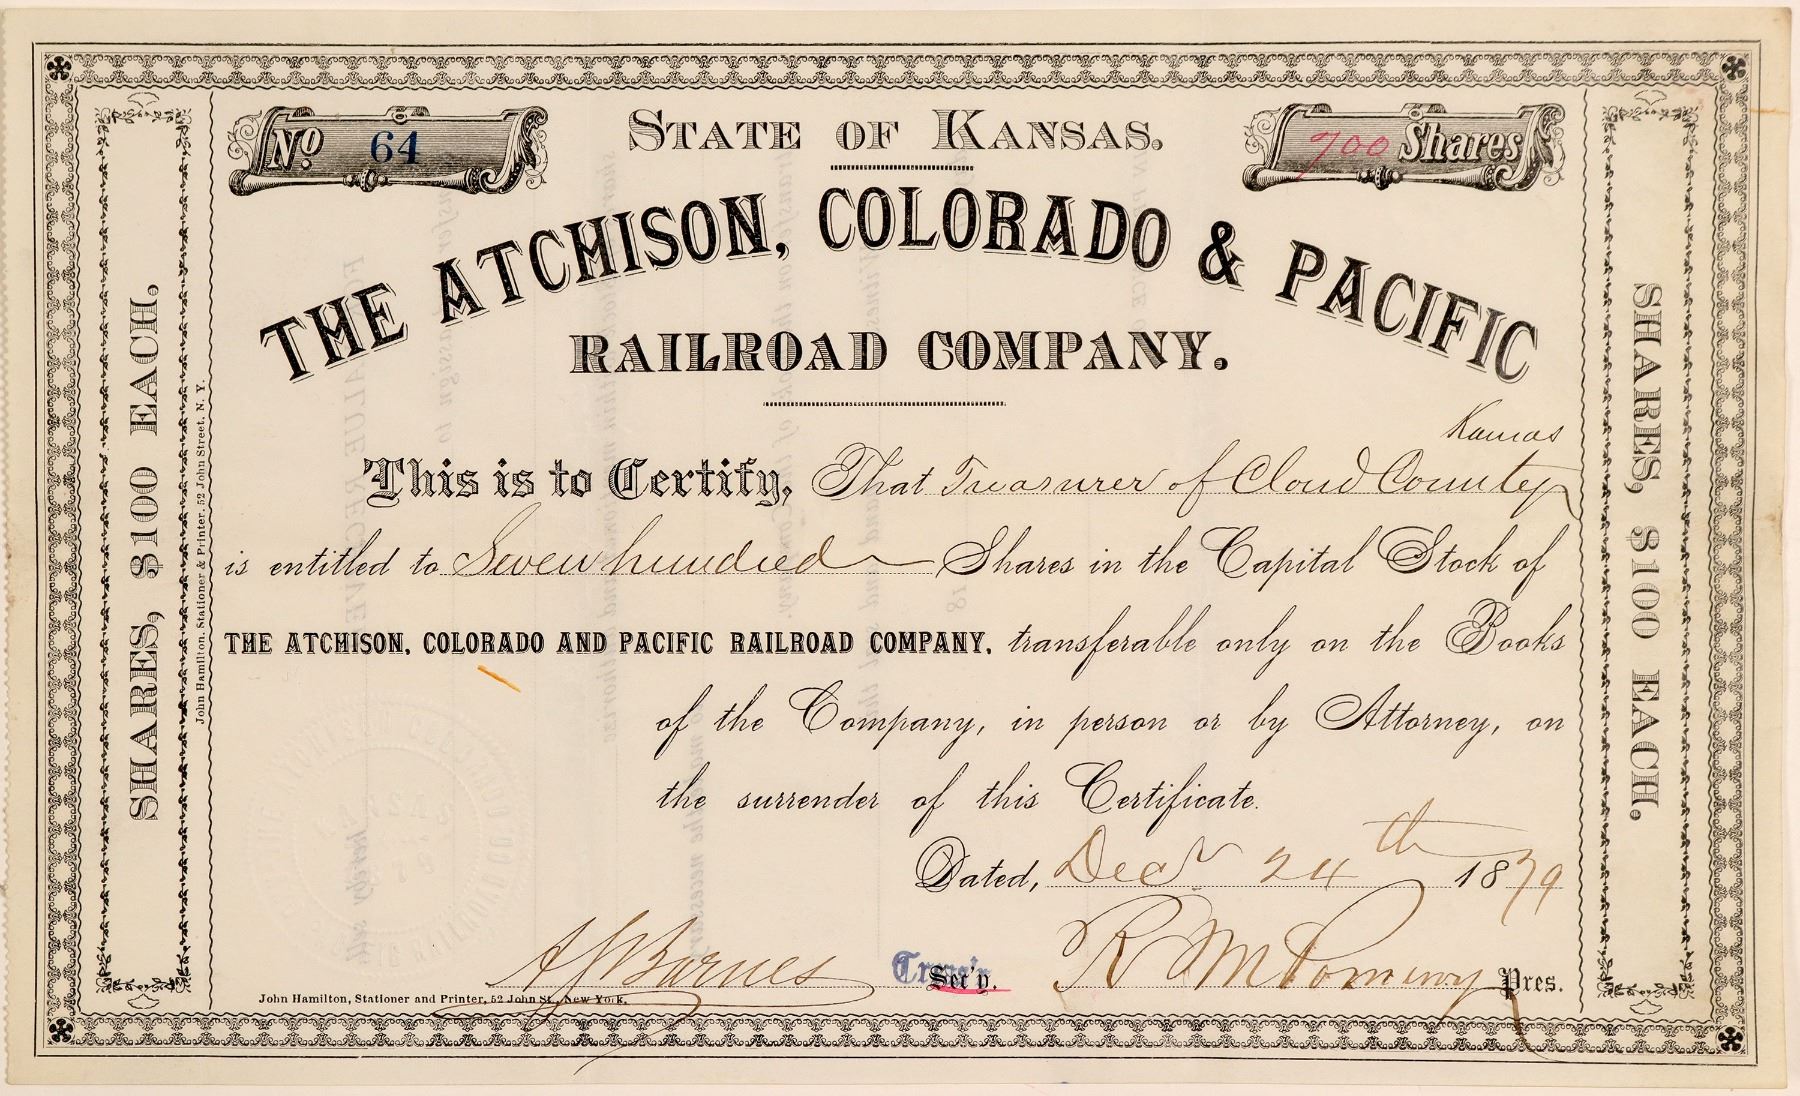 No. 64
STATE OF KANSAS.
700 Shares
THE ATCHISON, COLORADO & PACIFIC
RAILROAD COMPANY.
Kansas
This is to Certify, That Treasurer of Cloud County
is entitled to Seven hundred Shares in the Capital Stock of
THE ATCHISON, COLORADO AND PACIFIC RAILROAD COMPANY, transferable only on the Books
of the Company, in person or by Attorney, on
the surrender of this Certificate.
Dated, Dec 24th 1879
Sec'y.
R M Pomeroy Pres.
John Hamilton, Stationer and Printer, 52 John St., New York.
SHARES, $100 EACH.
John Hamilton, Stationer & Printer, 52 John Street, N. Y.
SHARES, $100 EACH.